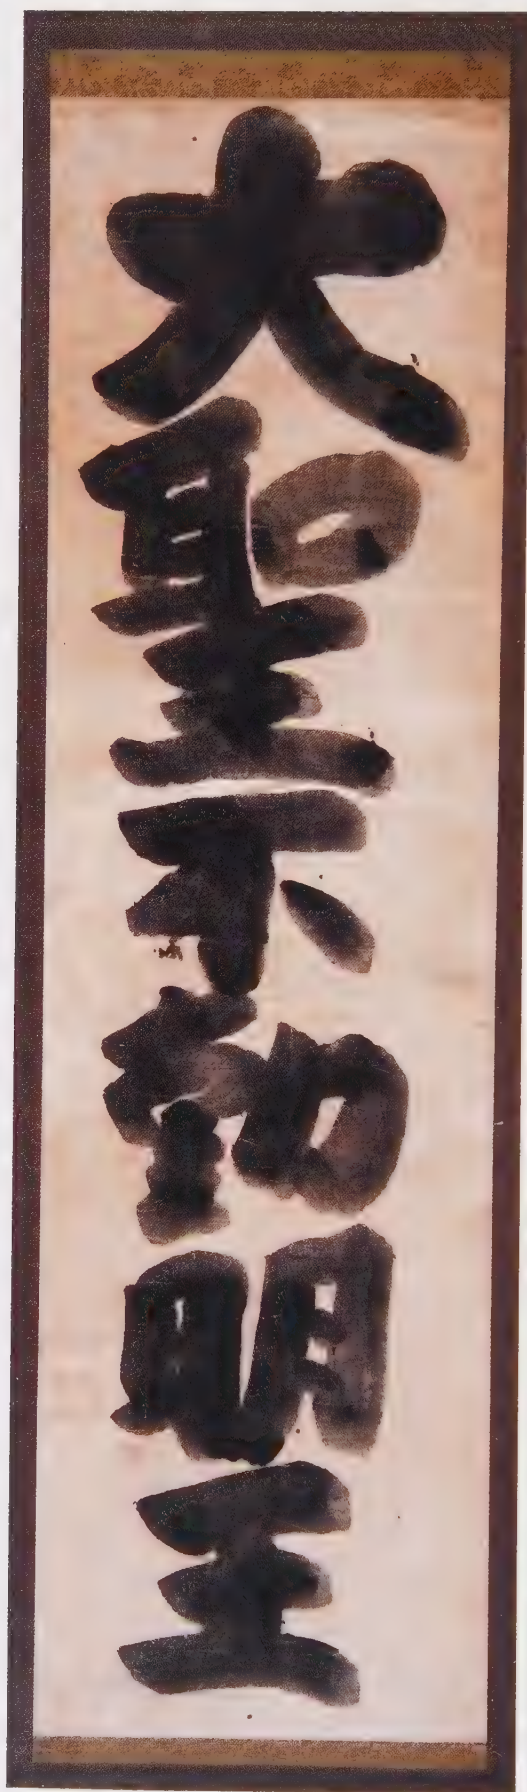 大聖不動明王